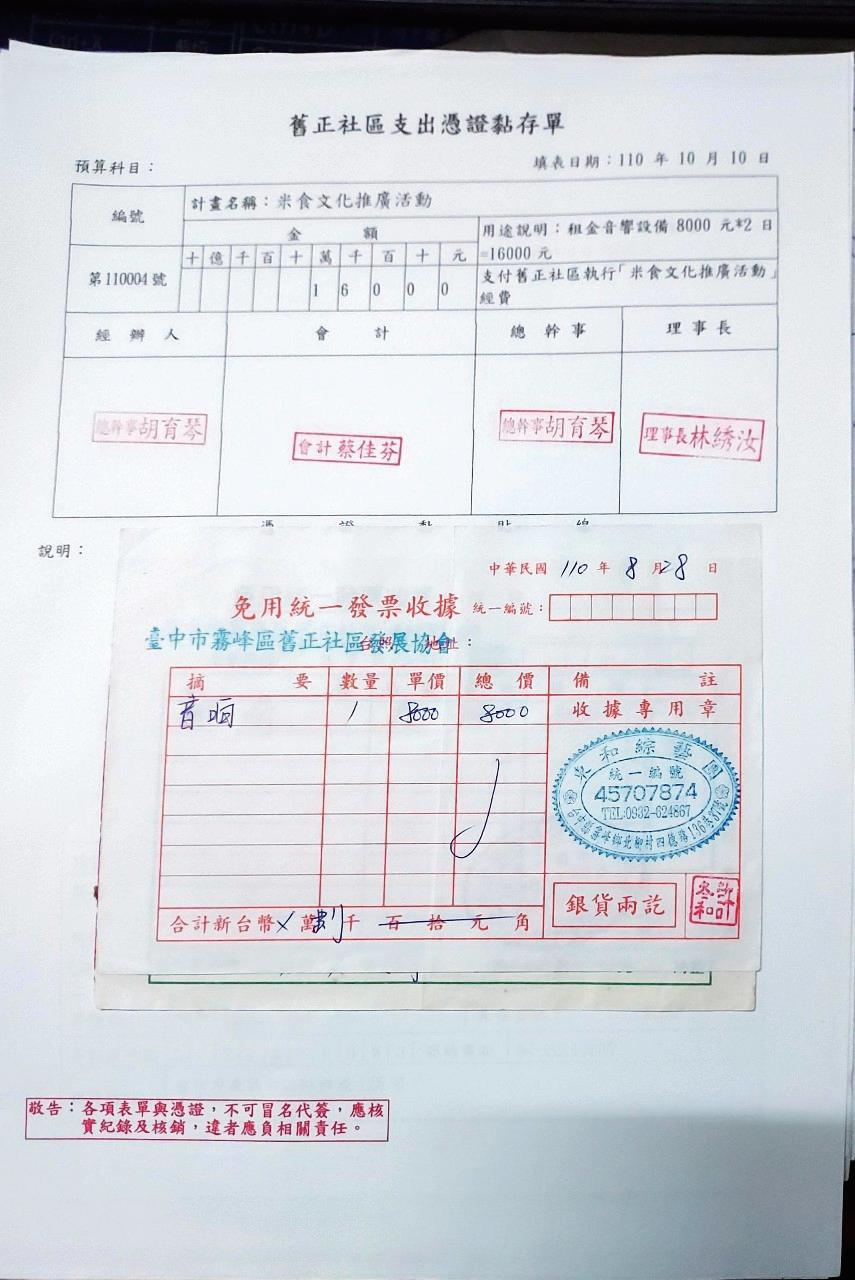 舊正社區支出憑證黏存單
預算科目：
填表日期：110 年 10 月 10 日
編號
計畫名稱：米食文化推廣活動
金 額
用途說明：租金音響設備 8000 元*2 日
=16000 元
十 億 千 百 十 萬 千 百 十 元
第110004號
1 6 0 0 0
支付舊正社區執行「米食文化推廣活動」
經費
經 辦 人 會 計 總 幹 事 理 事 長
總幹事胡育琴
會計蔡佳芬
總幹事胡育琴
理事長林綉汝
憑 證 黏 貼 線
說明：
中華民國 110 年 8 月 28 日
免用統一發票收據 統一編號：
臺中市霧峰區舊正社區發展協會
台照 地址：
摘 要 數量 單價 總 價 備 註
音响 1 8000 8000 收據專用章
東和綜藝團
統一編號
45707874
TEL:0932-624867
合計新台幣 萬 捌 千 百 拾 元 角
銀貨兩訖
敬告：各項表單與憑證，不可冒名代簽，應核
實紀錄及核銷，違者應負相關責任。